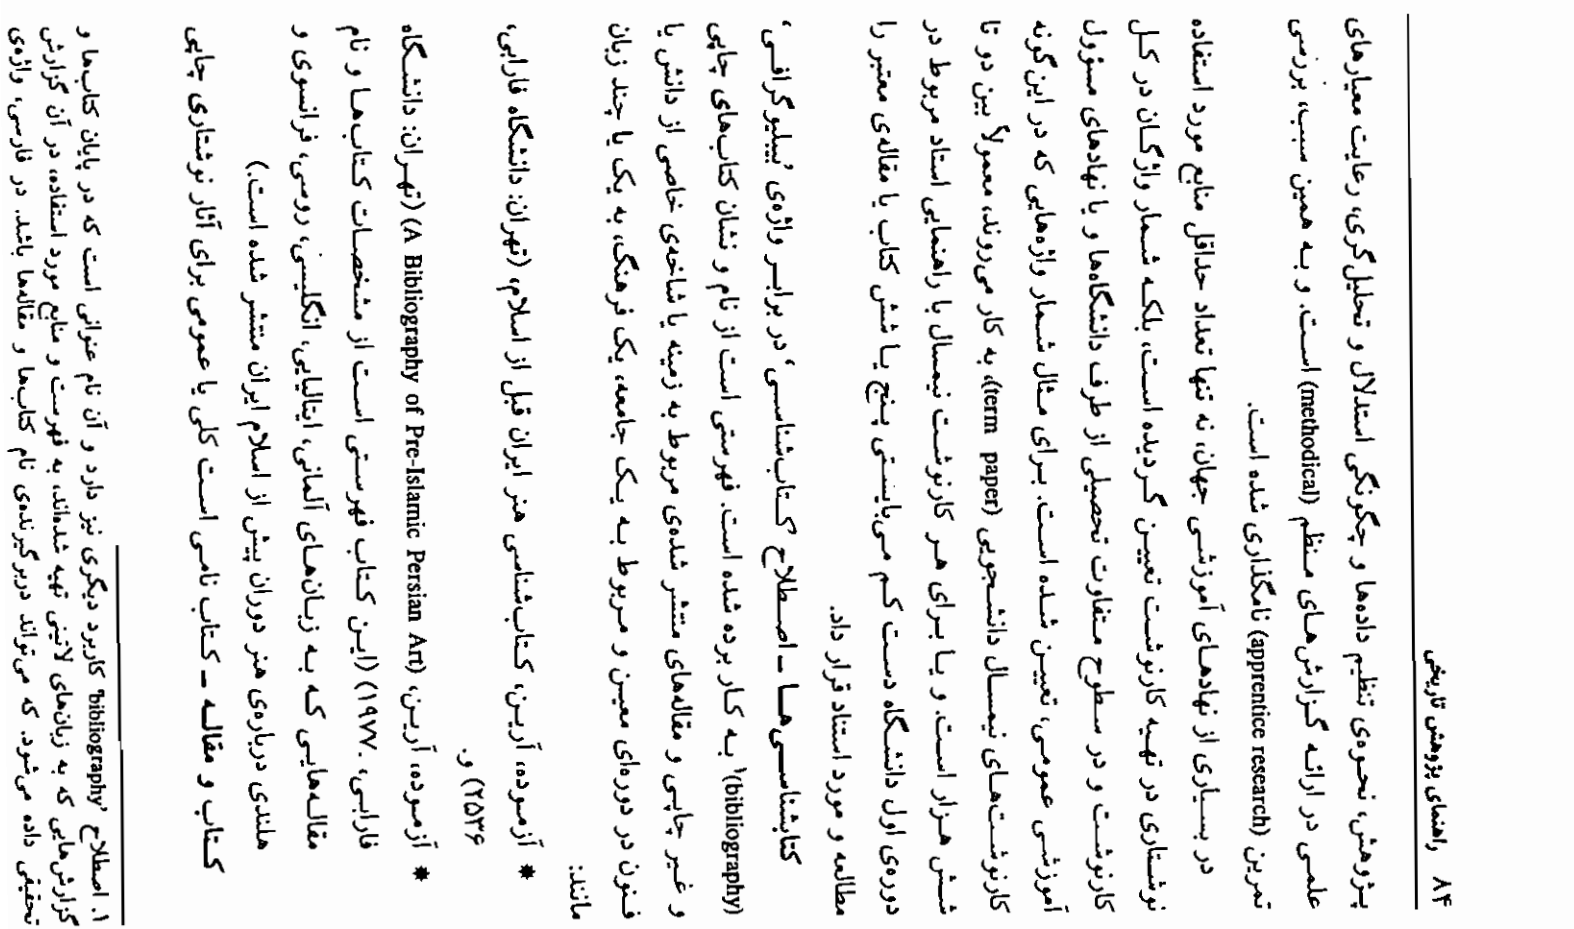 ۸۴ راهنمای پژوهش تاریخی
پژوهش، نحوه‌ی تنظیم داده‌ها و چگونگی استدلال و تحلیل‌گری، رعایت معیارهای
علمی در ارائه گزارش‌های منظم (methodical) است. و به همین سبب، بررسی
تمرین (apprentice research) نامگذاری شده است.
در بسیاری از نهادهای آموزشی جهان، نه تنها تعداد حداقل منابع مورد استفاده
نوشتاری در تهیه کارنوشت تعیین گردیده است، بلکه شمار واژگان در کل
کارنوشت و در سطوح متفاوت تحصیلی از طرف دانشگاه‌ها و یا نهادهای مسؤول
آموزشی عمومی، تعیین شده است. برای مثال شمار واژه‌هایی که در این گونه
کارنوشت‌های نیمسال دانشجویی (term paper)، به کار می‌روند، معمولاً بین دو تا
شش هزار است. و یا برای هر کارنوشت نیمسال با راهنمایی استاد مربوط در
دوره‌ی اول دانشگاه دست کم می‌بایستی پنج یا شش کتاب یا مقاله‌ی معتبر را
مطالعه و مورد استناد قرار داد.
کتابشناسی‌ها ـ اصطلاح ’کتاب‌شناسی‘ در برابر واژه‌ی ’بیبلیوگرافی‘،
(bibliography)¹ به کار برده شده است. فهرستی است از نام و نشان کتاب‌های چاپی
و غیر چاپی و مقاله‌های منتشر شده‌ی مربوط به زمینه یا شاخه‌ی خاصی از دانش یا
فنون در دوره‌ای معین و مربوط به یک جامعه، یک فرهنگ، به یک یا چند زبان
مانند:
* آزموده، آرین، کتاب‌شناسی هنر ایران قبل از اسلام، (تهران: دانشگاه فارابی،
۲۵۳۶) و.
* آزموده، آرین، (A Bibliography of Pre-Islamic Persian Art) (تهران: دانشگاه
فارابی، .۱۹۷۷) (این کتاب فهرستی است از مشخصات کتاب‌ها و نام
مقاله‌هایی که به زبان‌های آلمانی، ایتالیایی، انگلیسی، روسی، فرانسوی و
هلندی درباره‌ی هنر دوران پیش از اسلام ایران منتشر شده است.)
کتاب و مقاله ـ کتاب نامی است کلی یا عمومی برای آثار نوشتاری چاپی
۱. اصطلاح ’bibliography‘ کاربرد دیگری نیز دارد و آن نام عنوانی است که در پایان کتاب‌ها و
گزارش‌هایی که به زبان‌های لاتینی تهیه شده‌اند، به فهرست و منابع مورد استفاده، در آن گزارش
تحقیقی داده می‌شود. که می‌تواند دربرگیرنده‌ی نام کتاب‌ها و مقاله‌ها باشد. در فارسی، واژه‌ی